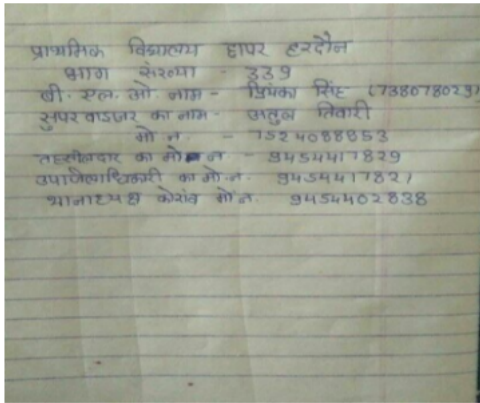 प्राथमिक विद्यालय हापर हरदौन
भाग संख्या - 339
बी. एल. ओ. नाम - प्रियंका सिंह (738078029)
सुपरवाइजर का नाम - अतुल तिवारी
मो न. - 7524088853
तहसीलदार का मो न - 9454417829
उपजिलाधिकारी का मो.न. 9454417821
थानाध्यक्ष कोरांव मो न. 9454402838